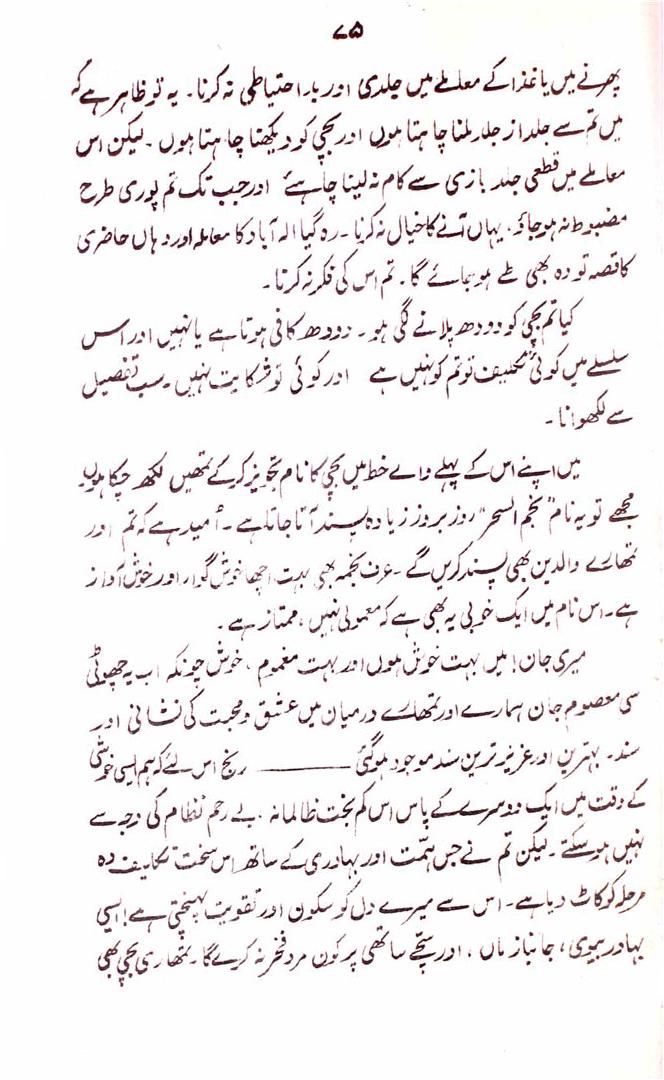 ۷۵
پھرنے میں یا غذا کے معاملے میں جلدی اور بداحتیاطی نہ کرنا۔ یہ تو ظاہر ہے کہ
میں تم سے جلد از جلد ملنا چاہتا ہوں اور بچی کو دیکھنا چاہتا ہوں۔ لیکن اس
معاملے میں قطعی جلد بازی سے کام نہ لینا چاہئے اور جب تک تم پوری طرح
مضبوط نہ ہو جاؤ، یہاں آنے کا خیال نہ کرنا۔ رہ گیا الہ آباد کا معاملہ اور وہاں حاضری
کا قصہ تو وہ بھی طے ہو جائے گا۔ تم اس کی فکر نہ کرنا۔
کیا تم بچی کو دودھ پلانے لگی ہو۔ دودھ کافی ہوتا ہے یا نہیں اور اس
سلسلے میں کوئی تکلیف تو تم کو نہیں ہے اور کوئی تو شکایت نہیں۔ سب تفصیل
سے لکھوانا۔
میں اپنے اس کے پہلے والے خط میں بچی کا نام تجویز کر کے تمھیں لکھ چکا ہوں۔
مجھے تو یہ نام "نجم السحر" روز بروز زیادہ پسند آتا جاتا ہے۔ اُمید ہے کہ تم اور
تمھارے والدین بھی پسند کریں گے۔ عرف نجمہ بھی بہت اچھا خوش گوار اور خوش آواز
ہے۔ اس نام میں ایک خوبی یہ بھی ہے کہ معمولی نہیں، ممتاز ہے۔
میری جان! میں بہت خوش ہوں اور بہت مغموم، خوش چونکہ اب یہ چھوٹی
سی معصوم جان ہمارے اور تمھارے درمیان میں عشق و محبت کی نشانی اور
سند۔ بہترین اور عزیز ترین سند موجود ہو گئی ——— رنج اس لئے کہ ہم ایسی خوشی
کے وقت میں ایک دوسرے کے پاس اس کم بخت ظالمانہ، بے رحم نظام کی وجہ سے
نہیں ہو سکتے۔ لیکن تم نے جس ہمّت اور بہادری کے ساتھ اس سخت تکلیف دہ
مرحلہ کو کاٹ دیا ہے۔ اس سے میرے دل کو سکون اور تقویت پہنچتی ہے! ایسی
بہادر بیوی، جانباز ماں، اور سچّے ساتھی پر کون مرد فخر نہ کرے گا۔ تمھاری بچی بھی